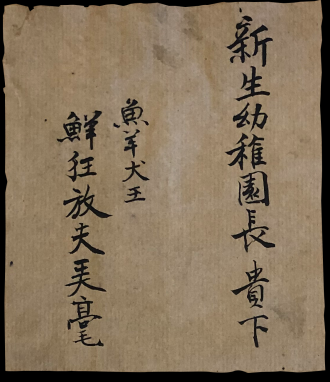 新生幼稚園長 貴下
魚羊犬王
鮮狂放夫 毫